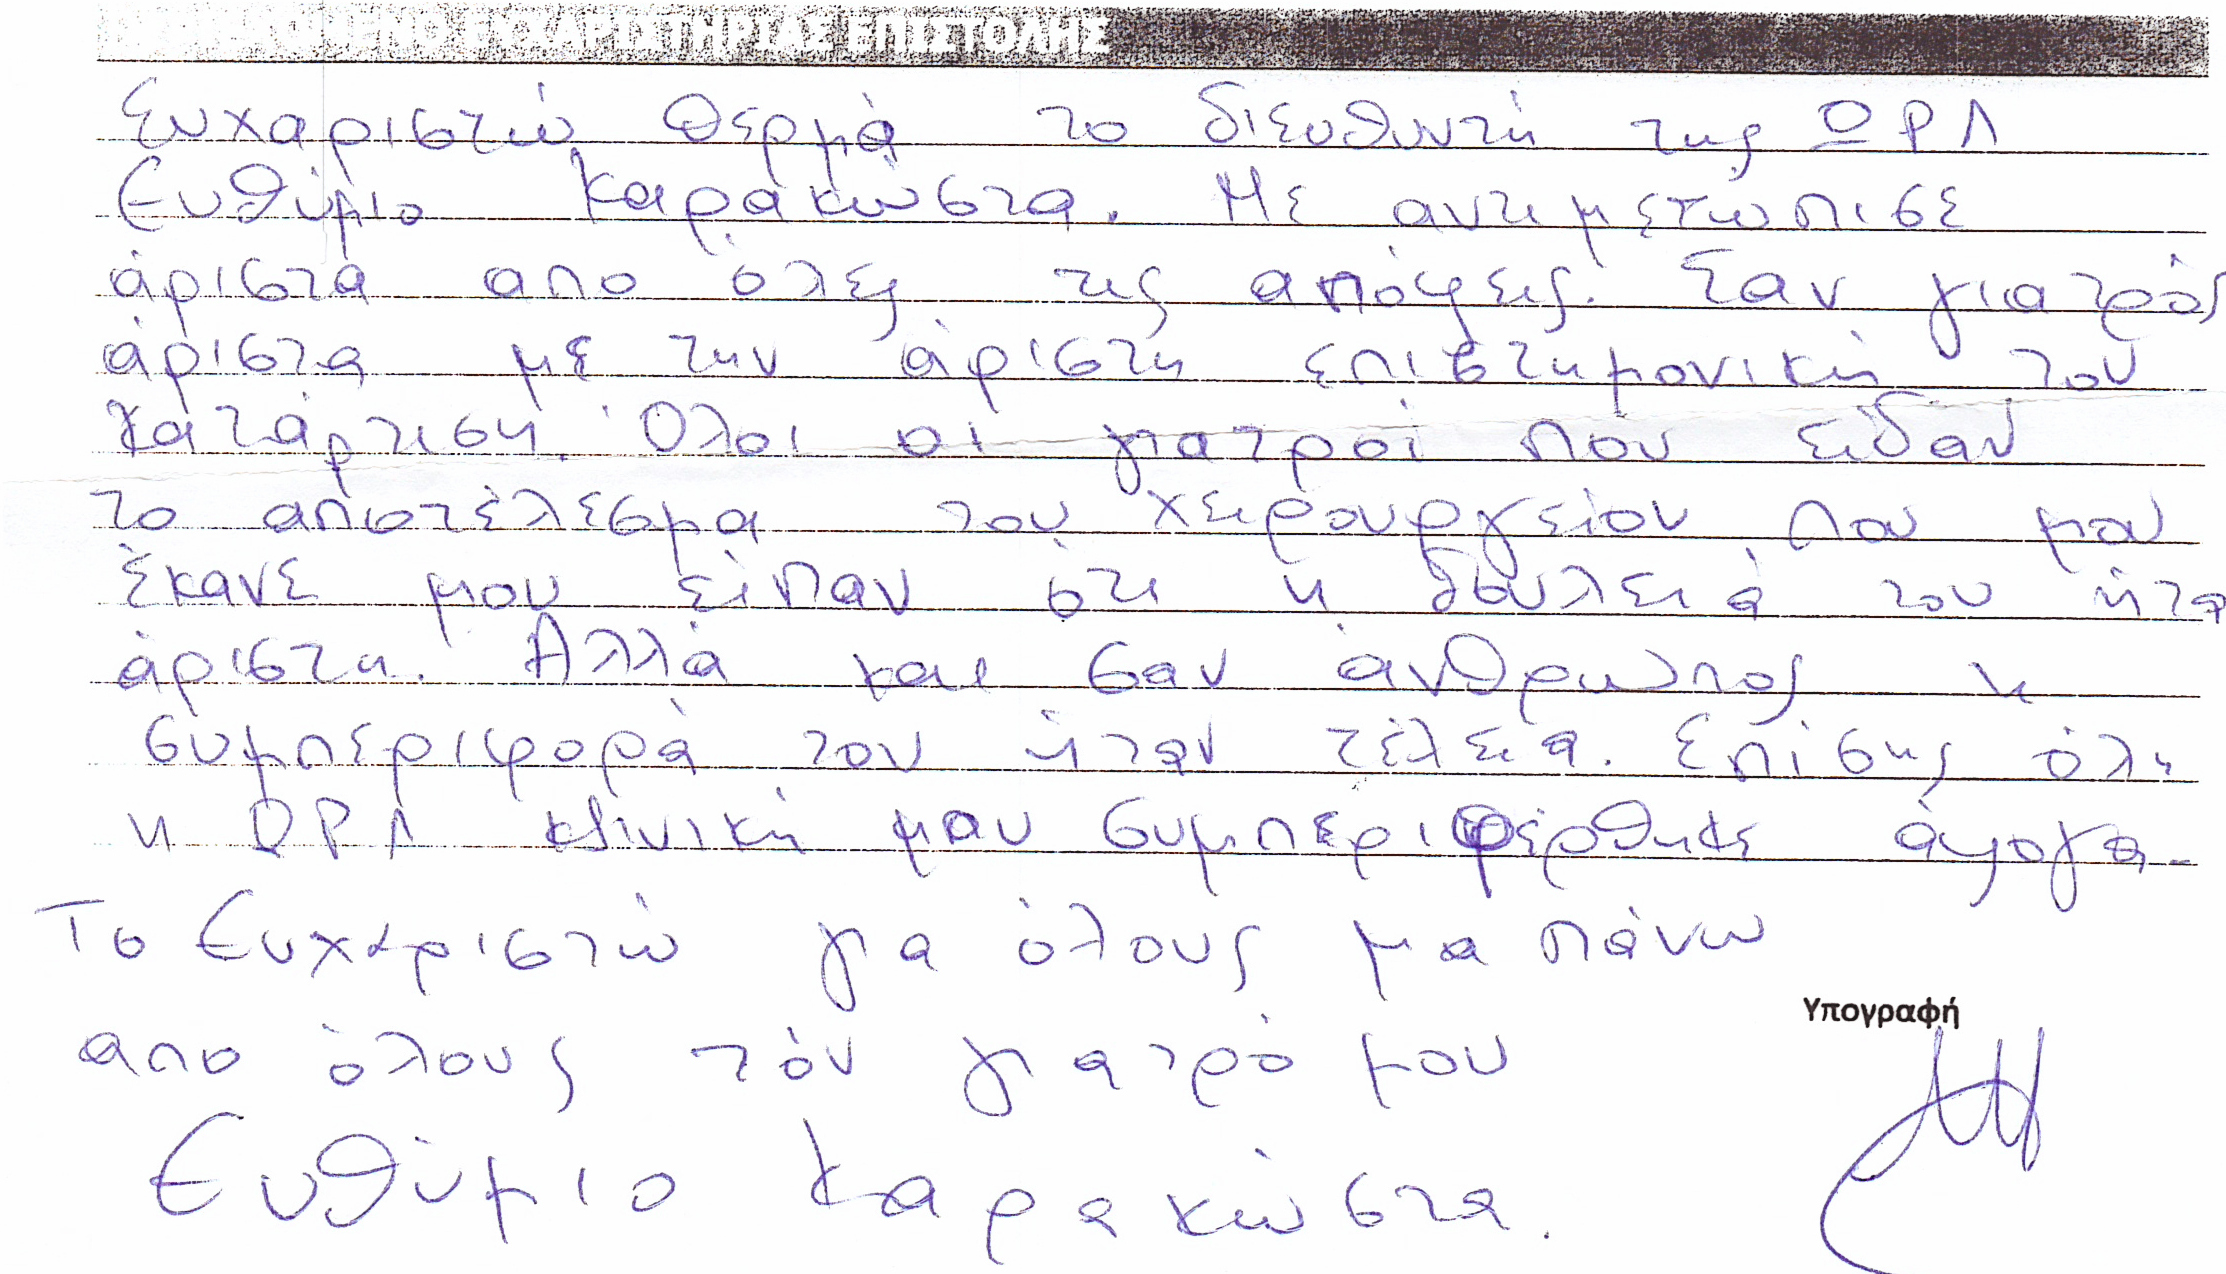 ΠΕΡΙΕΧΟΜΕΝΟ ΕΥΧΑΡΙΣΤΗΡΙΑΣ ΕΠΙΣΤΟΛΗΣ
Ευχαριστώ θερμά το διευθυντή της ΩΡΛ
Ευθύμιο Καρακώστα. Με αντιμετώπισε
άριστα απο όλες τις απόψεις. Σαν γιατρός
άριστα με την άριστη επιστημονική του
κατάρτιση. Όλοι οι γιατροί που είδαν
το αποτέλεσμα του χειρουργείου που μου
έκανε μου είπαν ότι η δουλειά του ήτα
άριστη. Αλλά και σαν άνθρωπος η
συμπεριφορά του ήταν τέλεια. Επίσης όλη
η ΩΡΛ κλινική μου συμπεριφέρθηκε άψογα.
Το Ευχαριστώ για όλους μα πάνω
απο όλους τόν γιατρό μου
Υπογραφή
Ευθύμιο Καρακώστα.